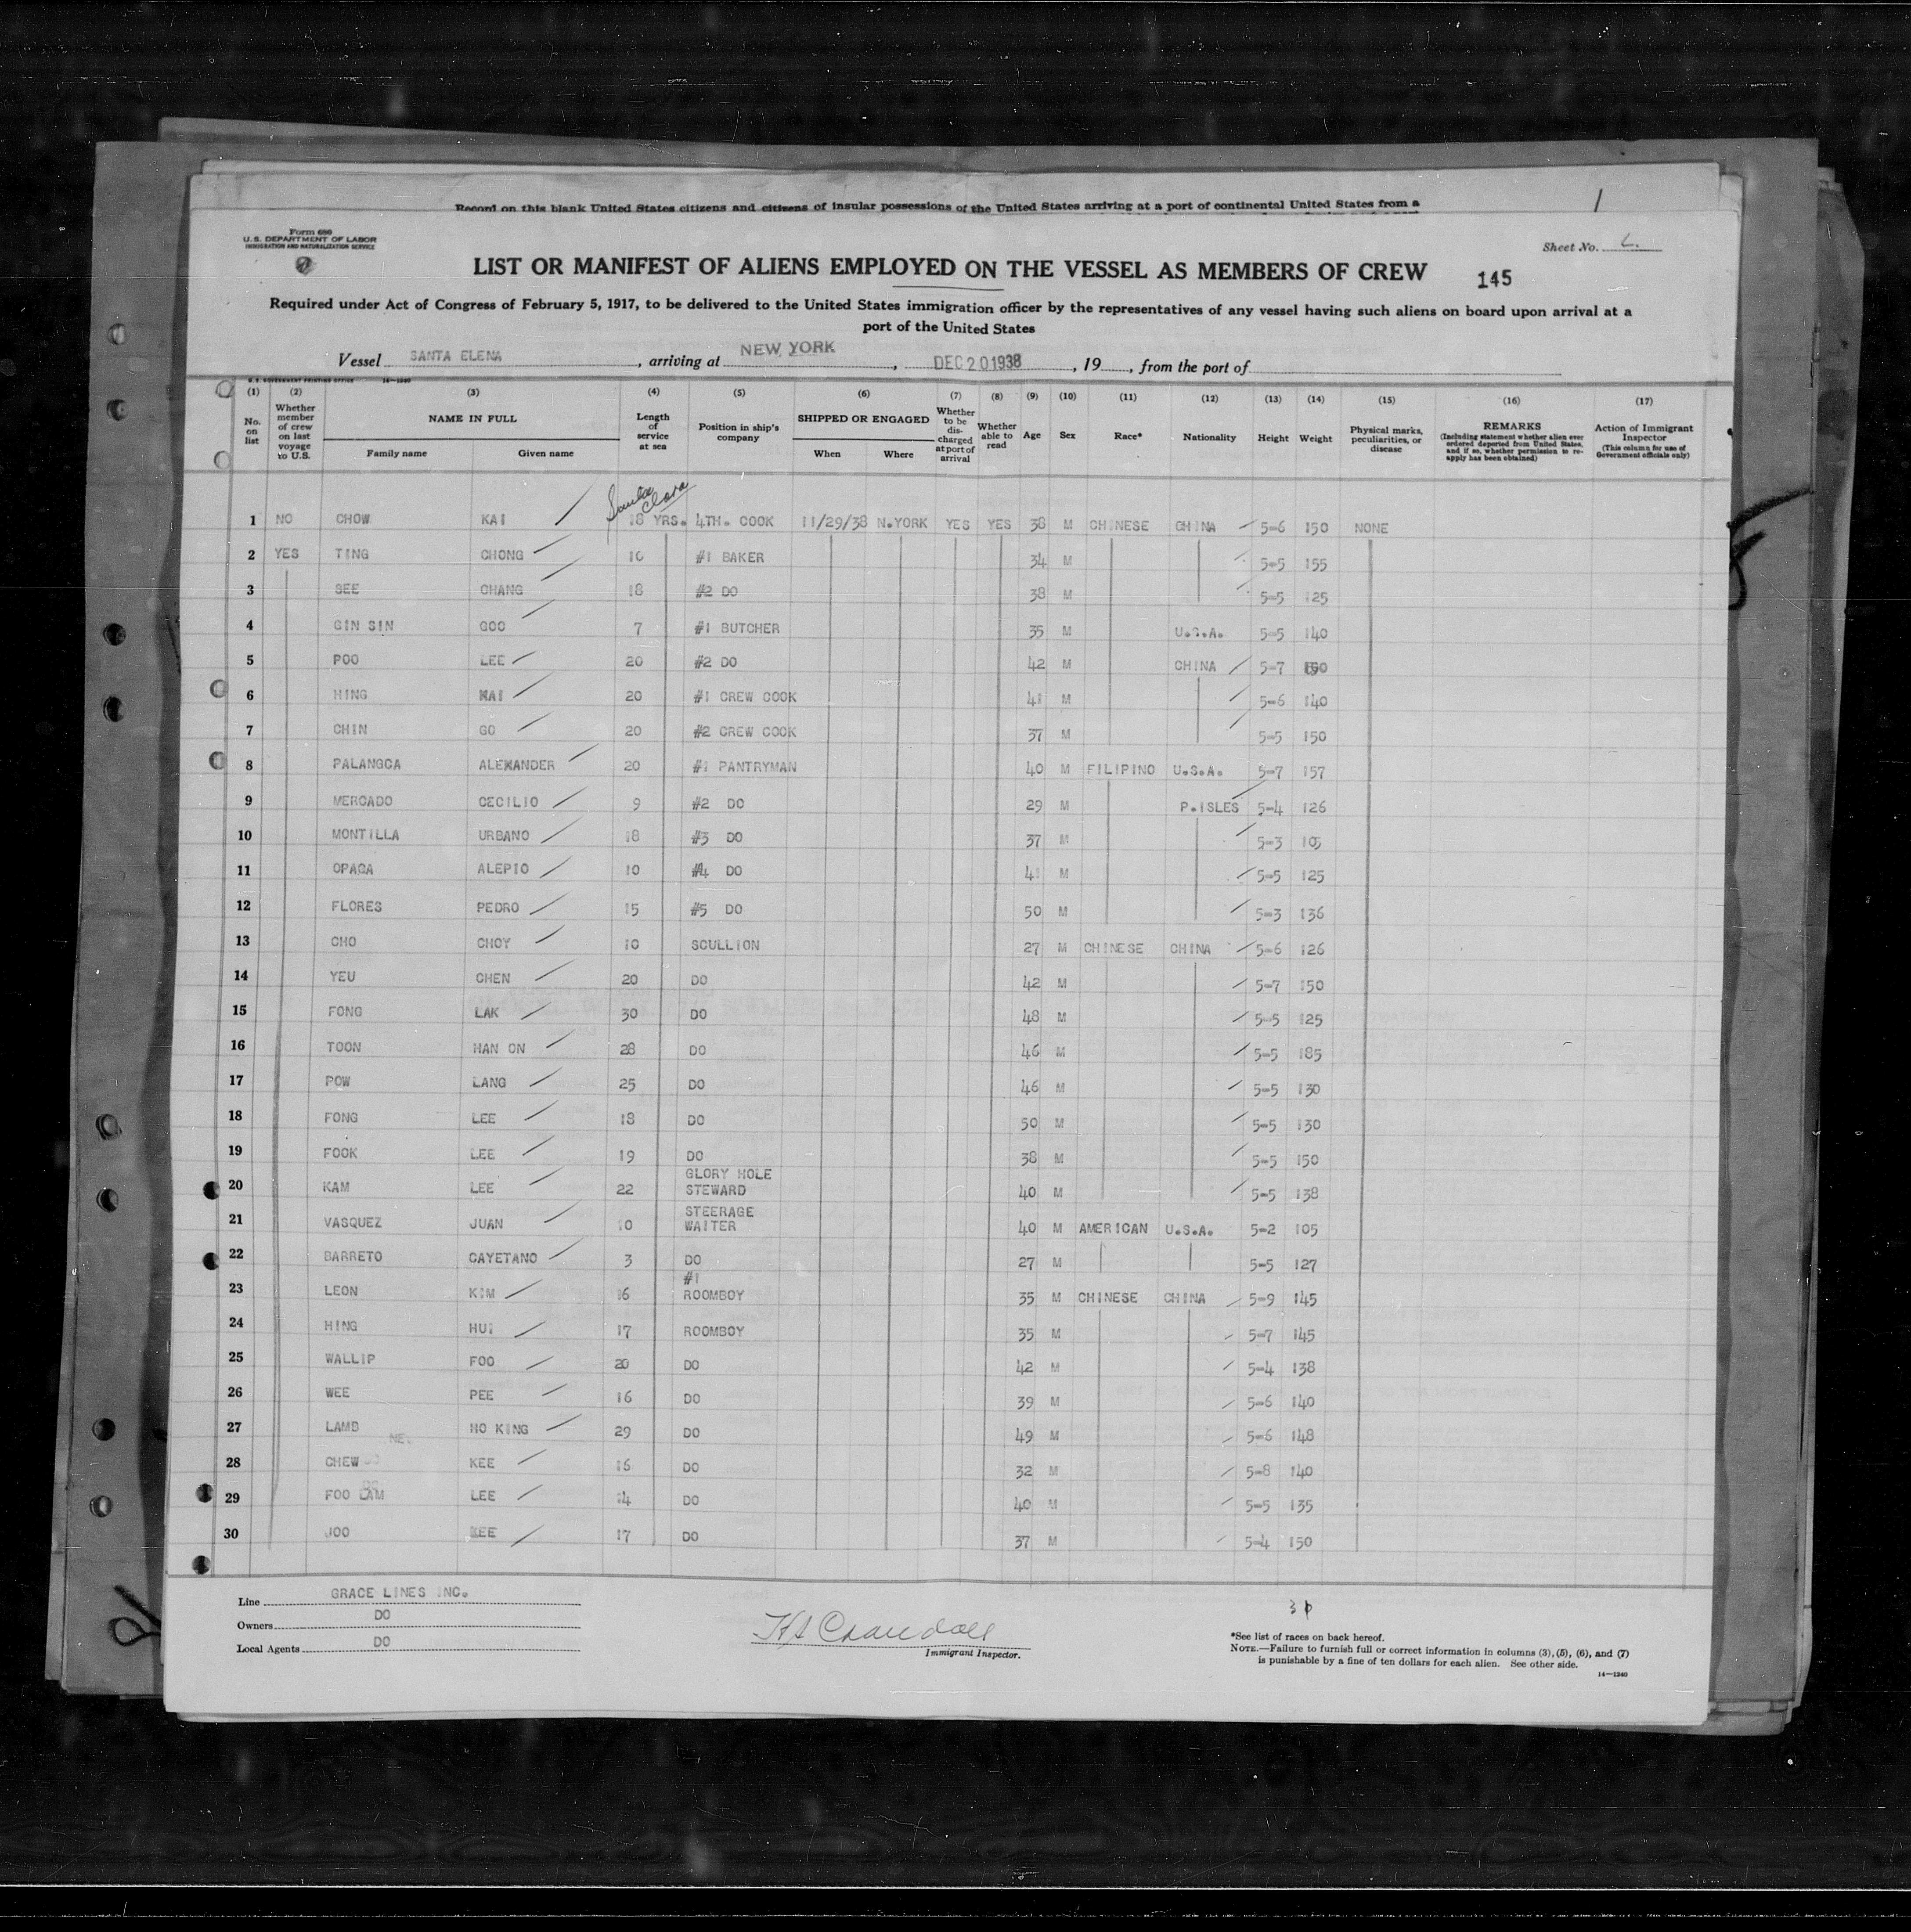 Record on this blank United States citizens and citizens of insular possessions of the United States arriving at a port of continental United States from a
1
Form 680
U.S. DEPARTMENT OF LABOR
IMMIGRATION AND NATURALIZATION SERVICE
Sheet No.
LIST OR MANIFEST OF ALIENS EMPLOYED ON THE VESSEL AS MEMBERS OF CREW
145
Required under Act of Congress of February 5, 1917, to be delivered to the United States immigration officer by the representatives of any vessel having such aliens on board upon arrival at a
port of the United States
Vessel SANTA ELENA, arriving at NEW YORK, DEC 20 1938, 19, from the port of
U.S. GOVERNMENT PRINTING OFFICE 14—1240
(1) (2) (3) (4) (5) (6) (7) (8) (9) (10) (11) (12) (13) (14) (15) (16) (17)
No. on list
Whether member of crew on last voyage to U.S.
NAME IN FULL
Family name
Given name
Length of service at sea
Position in ship's company
SHIPPED OR ENGAGED
When
Where
Whether to be discharged at port of arrival
Whether able to read
Age
Sex
Race*
Nationality
Height
Weight
Physical marks, peculiarities, or disease
REMARKS
(Including statement whether alien ever ordered deported from United States, and if so, whether permission to reapply has been obtained)
Action of Immigrant Inspector
(This column for use of Government officials only)
Santa Clara
1 NO CHOW KAI 18 YRS. 4TH. COOK 11/29/38 N.YORK YES YES 38 M CHINESE CHINA 5-6 150 NONE
2 YES TING CHONG 10 #1 BAKER 34 M 5-5 155
3 SEE CHANG 18 #2 DO 38 M 5-5 125
4 GIN SIN GOO 7 #1 BUTCHER 35 M U.S.A. 5-5 140
5 POO LEE 20 #2 DO 42 M CHINA 5-7
6 HING KAI 20 #1 CREW COOK 41 M 5-6 140
7 CHIN GO 20 #2 CREW COOK 37 M 5-5 150
8 PALANGCA ALEXANDER 20 #1 PANTRYMAN 40 M FILIPINO U.S.A. 5-7 157
9 MERCADO CECILIO 9 #2 DO 29 M P.ISLES 5-4 126
10 MONTILLA URBANO 18 #3 DO 37 M 5-3 105
11 OPACA ALEPIO 10 #4 DO 41 M 5-5 125
12 FLORES PEDRO 15 #5 DO 50 M 5-3 136
13 CHO CHOY 10 SCULLION 27 M CHINESE CHINA 5-6 126
14 YEU CHEN 20 DO 42 M 5-7 150
15 FONG LAK 30 DO 48 M 5-5 125
16 TOON HAN ON 28 DO 46 M 5-5 185
17 POW LANG 25 DO 46 M 5-5 130
18 FONG LEE 18 DO 50 M 5-5 130
19 FOOK LEE 19 DO 38 M 5-5 150
20 KAM LEE 22 GLORY HOLE STEWARD 40 M 5-5 138
21 VASQUEZ JUAN 10 STEERAGE WAITER 40 M AMERICAN U.S.A. 5-2 105
22 BARRETO CAYETANO 3 DO 27 M 5-5 127
23 LEON KIM 16 #1 ROOMBOY 35 M CHINESE CHINA 5-9 145
24 HING HUI 17 ROOMBOY 35 M 5-7 145
25 WALLIP FOO 20 DO 42 M 5-4 138
26 WEE PEE 16 DO 39 M 5-6 140
27 LAMB HO KING 29 DO 49 M 5-6 148
28 CHEW KEE 16 DO 32 M 5-8 140
29 FOO LAM LEE 14 DO 40 M 5-5 135
30 JOO KEE 17 DO 37 M 5-4 150
Line GRACE LINES INC.
Owners DO
Local Agents DO
Immigrant Inspector.
*See list of races on back hereof.
NOTE.—Failure to furnish full or correct information in columns (3), (5), (6), and (7)
is punishable by a fine of ten dollars for each alien. See other side.
14—1240